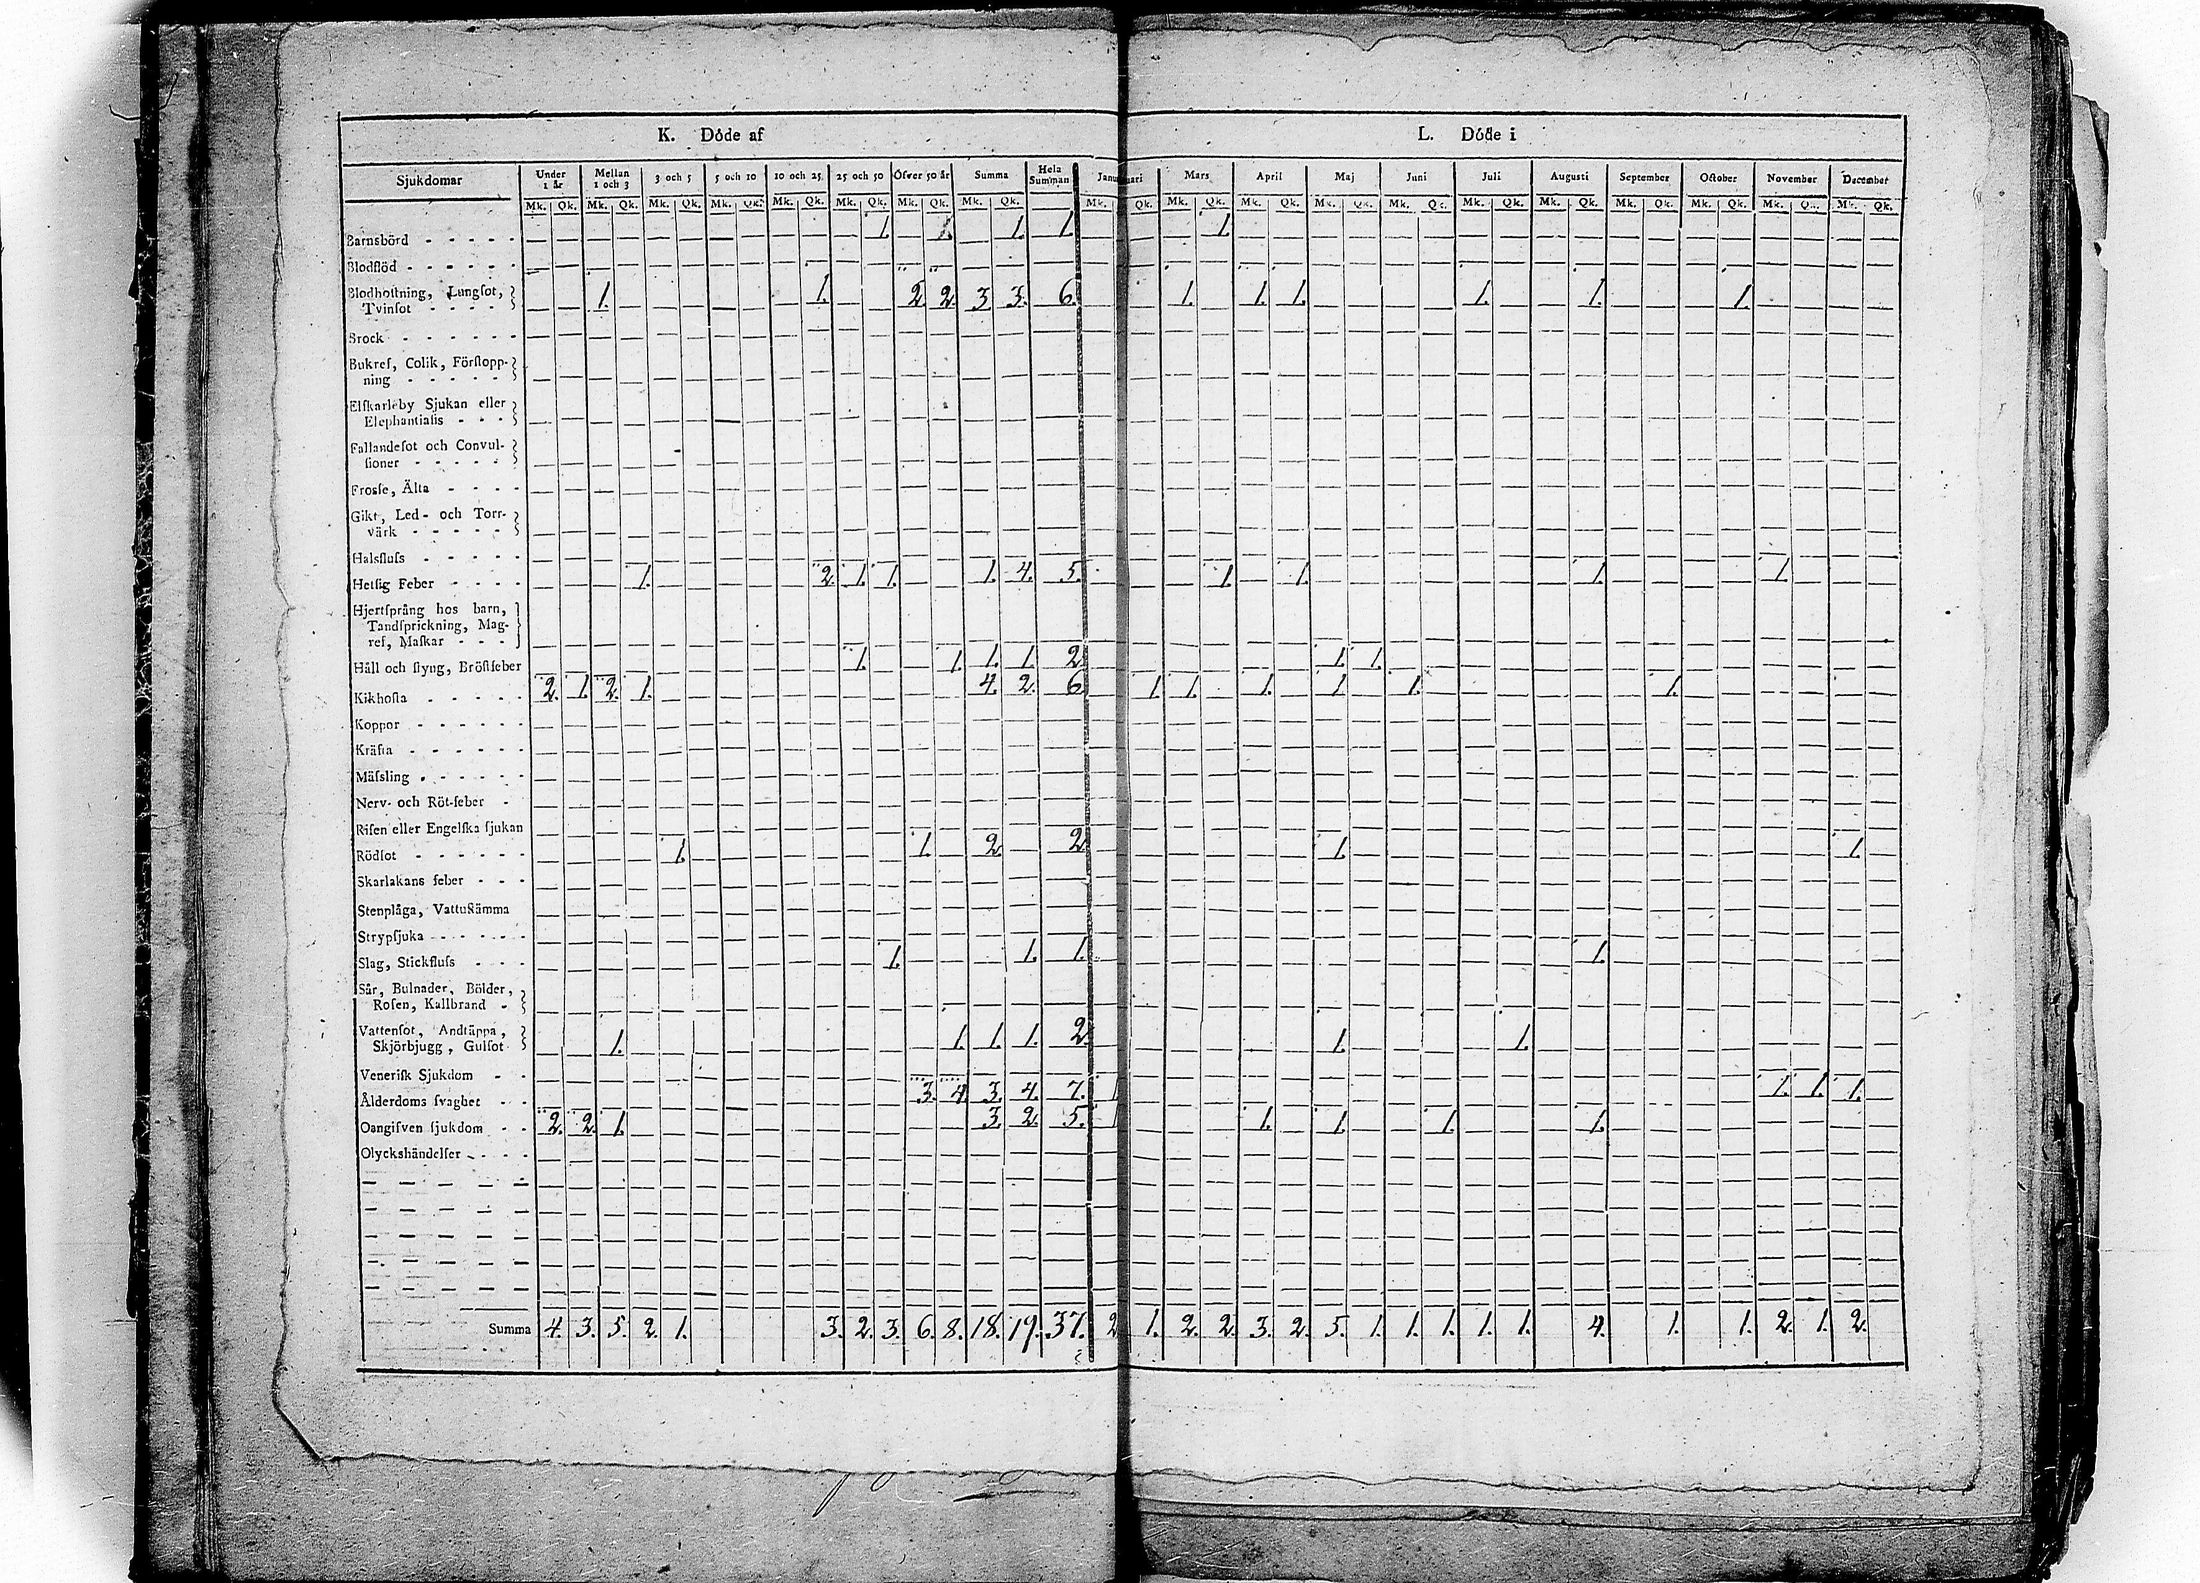 K. Döde af L. Döde i
Sjukdomar Under 1 år Mellan 1 och 3 3 och 5 5 och 10 10 och 25 25 och 50 Öfver 50 år Summa Hela Summan Januari Mars April Maj Juni Juli Augusti September October November December
Mk. Qk. Mk. Qk. Mk. Qk. Mk. Qk. Mk. Qk. Mk. Qk. Mk. Qk. Mk. Qk. Mk. Qk. Mk. Qk. Mk. Qk. Mk. Qk. Mk. Qk. Mk. Qk. Mk. Qk. Mk. Qk. Mk. Qk. Mk. Qk. Mk. Qk.
Barnsbörd 1. 1. 1. 1. 1.
Blodflöd
Blodhostning, Lungsot,
Tvinsot 1. 1. 2. 2. 3. 3. 6. 1. 1. 1. 1. 1. 1.
Brock
Bukref, Colik, Förstopp-
ning
Elfkarleby Sjukan eller
Elephantiasis
Fallandesot och Convul-
sioner
Frosse, Älta
Gikt, Led- och Torr-
värk
Halsfluss
Hetsig Feber 1. 2. 1. 1. 1. 4. 5. 1. 1. 1. 1.
Hjertsprång hos barn,
Tandsprickning, Mag-
ref, Maskar
Håll och styng, Bröstfeber 1. 1. 1. 1. 2. 1. 1.
Kikhosta 2. 1. 2. 1. 4. 2. 6. 1. 1. 1. 1. 1. 1.
Koppor
Kräfta
Mässling
Nerv- och Röt-feber
Risen eller Engelska sjukan
Rödsot 1. 1. 2. 2. 1. 1.
Skarlakans feber
Stenplåga, Vattustämma
Strypsjuka
Slag, Stickfluss 1. 1. 1. 1.
Sår, Bulnader, Bölder,
Rosen, Kallbrand
Vattensot, Andtäppa,
Skjörbjugg, Gulsot 1. 1. 1. 1. 2. 1. 1.
Venerisk Sjukdom
Ålderdoms svaghet 3. 4. 3. 4. 7. 1 1. 1. 1.
Oangifven sjukdom 2. 2. 1. 3. 2. 5. 1 1. 1. 1. 1.
Olyckshändelser
Summa 4. 3. 5. 2. 1. 3. 2. 3. 6. 8. 18. 19. 37. 2 1. 2. 2. 3. 2. 5. 1. 1. 1. 1. 1. 4. 1. 1. 2. 1. 2.